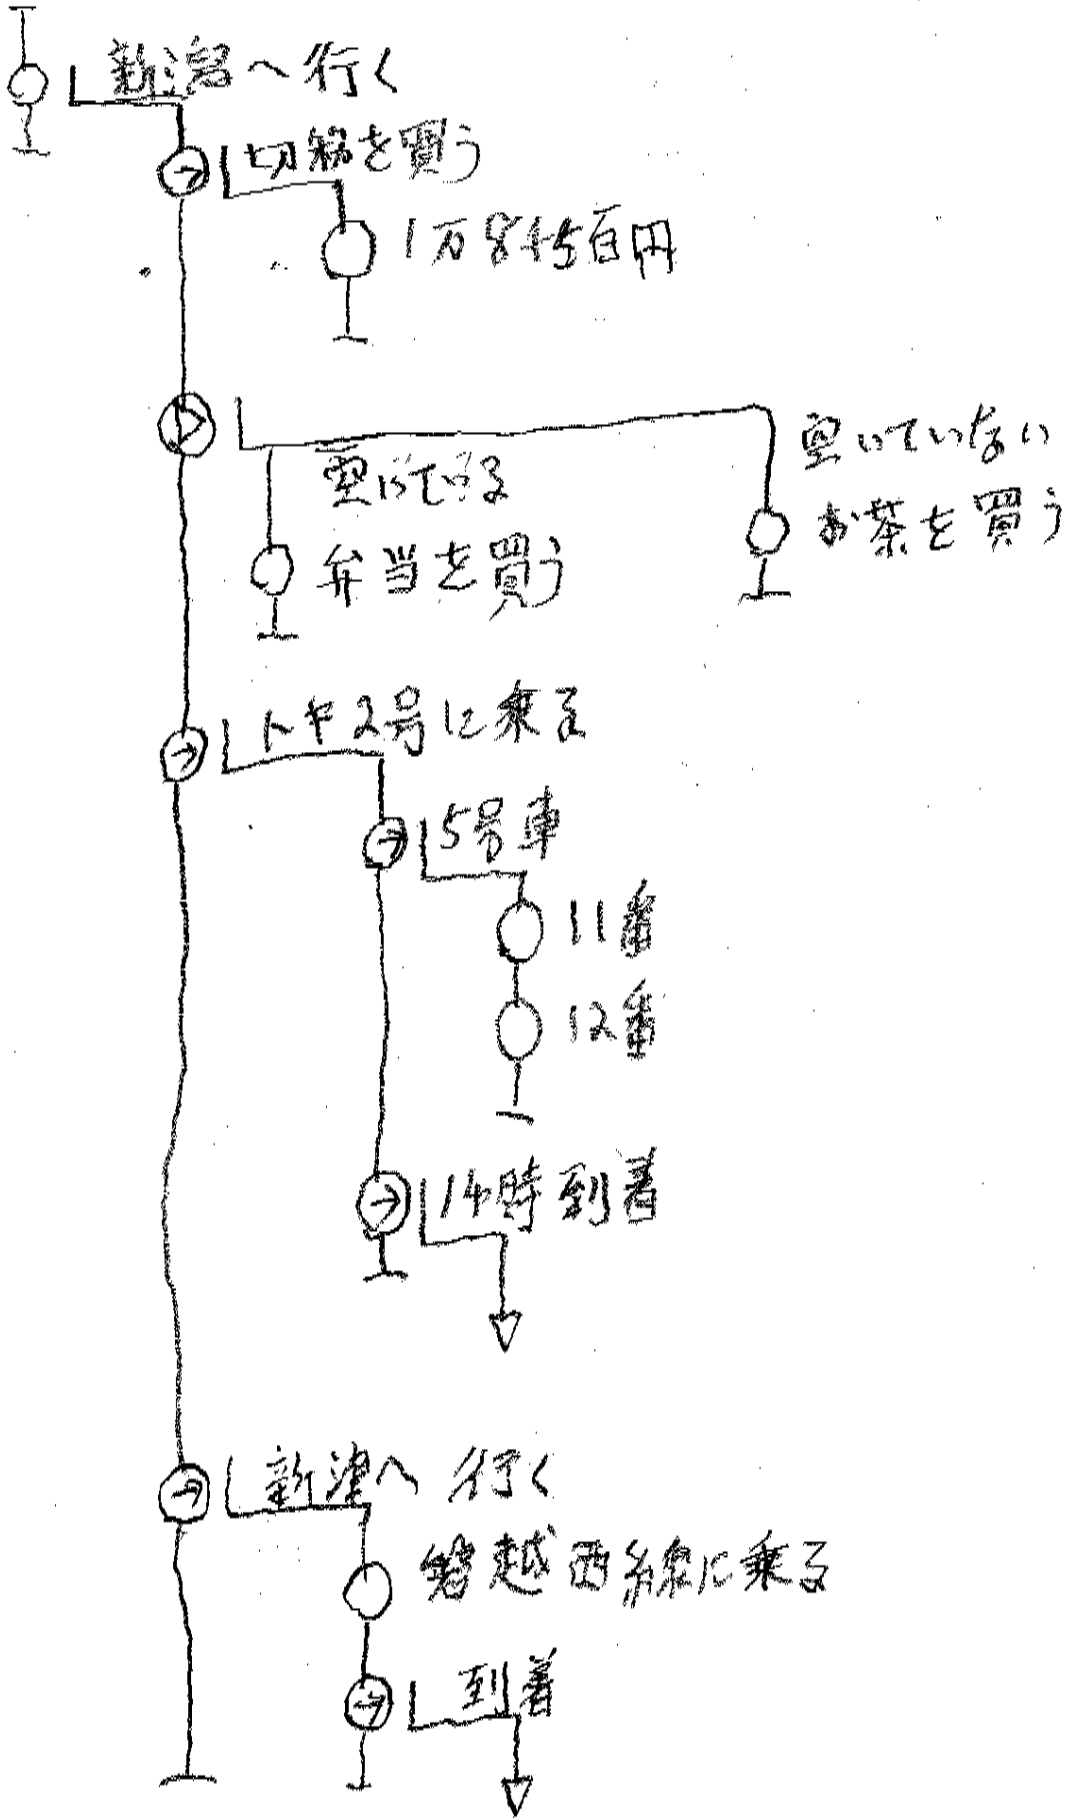 新潟へ行く
切符を買う
1万8千5百円
空いている
弁当を買う
空いていない
お茶を買う
トキ2号に乗る
5号車
11番
12番
14時到着
新津へ行く
磐越西線に乗る
到着